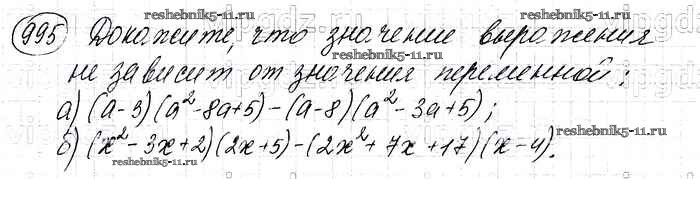 reshebnik5-11.ru
995 Докажите, что значение выражения
reshebnik5-11.ru
не зависит от значения переменной:
а) (a-3)(a²-8a+5)-(a-8)(a²-3a+5);
reshebnik5-11.ru
б) (x²-3x+2)(2x+5)-(2x²+7x+17)(x-4).
reshebnik5-11.ru